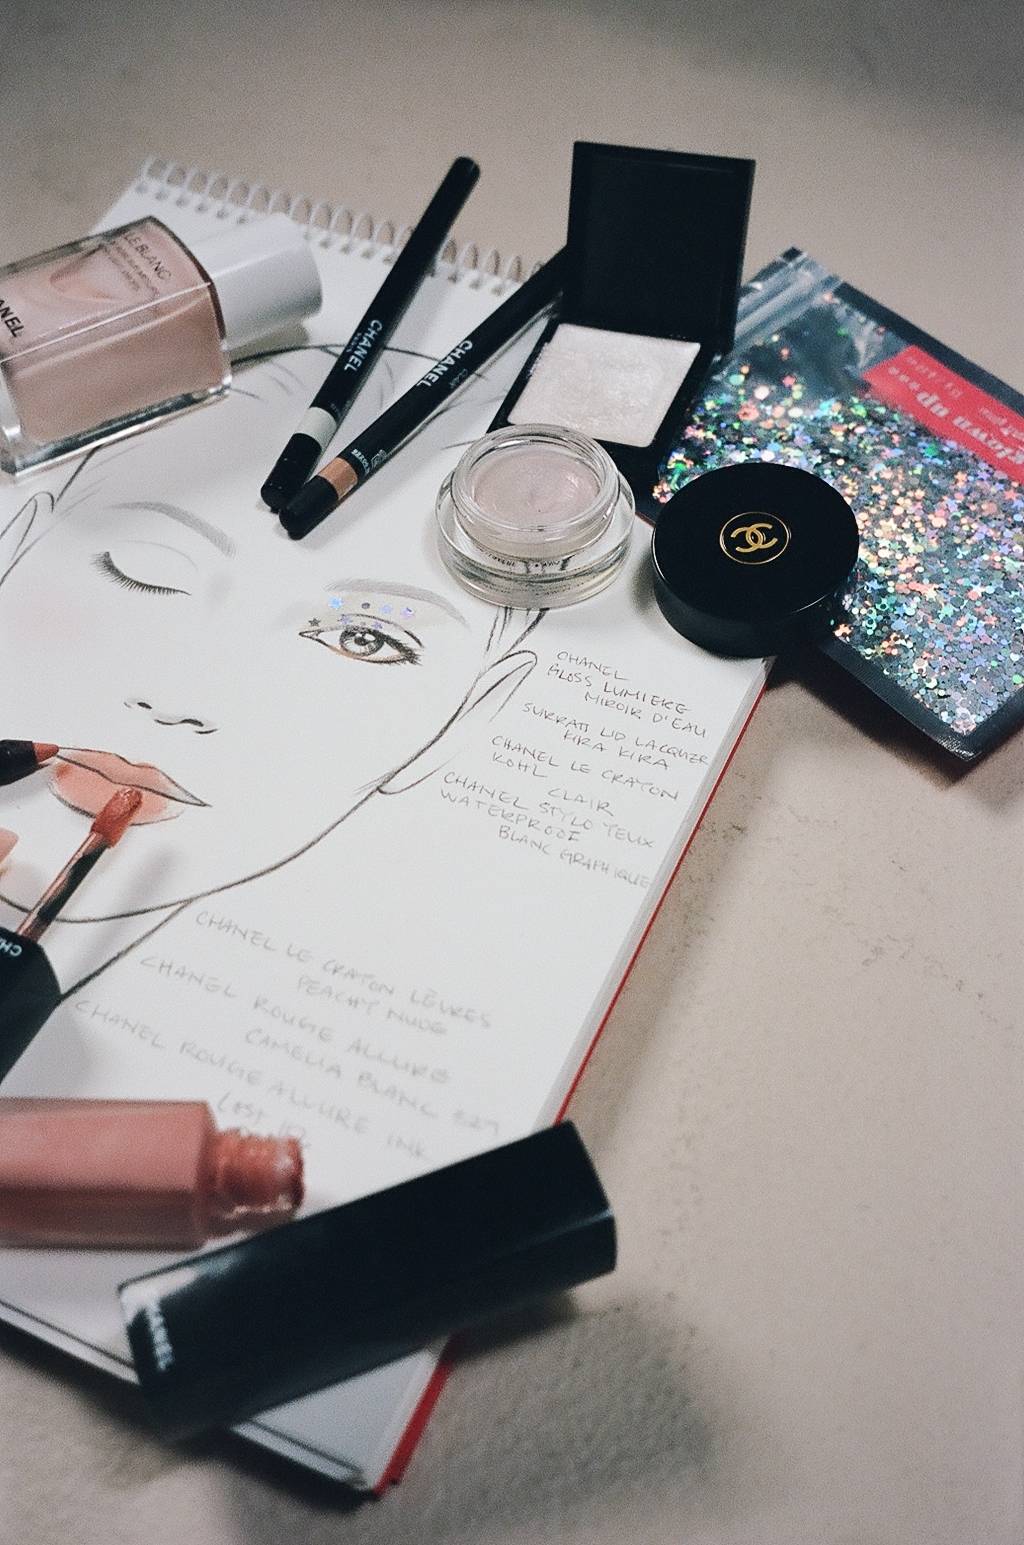 LE BLANC
CHANEL
CHANEL
CHANEL
CLAIR
CHANEL
GLOSS LUMIERE
MIROIR D'EAU
SURRATT LID LACQUER
KIRA KIRA
CHANEL LE CRAYON
KOHL
CLAIR
CHANEL STYLO YEUX
WATERPROOF
BLANC GRAPHIQUE
CHANEL LE CRAYON LÈVRES
PEACHY NUDE
CHANEL ROUGE ALLURE
CAMELIA BLANC 327
CHANEL ROUGE ALLURE INK
LOST
CHANEL